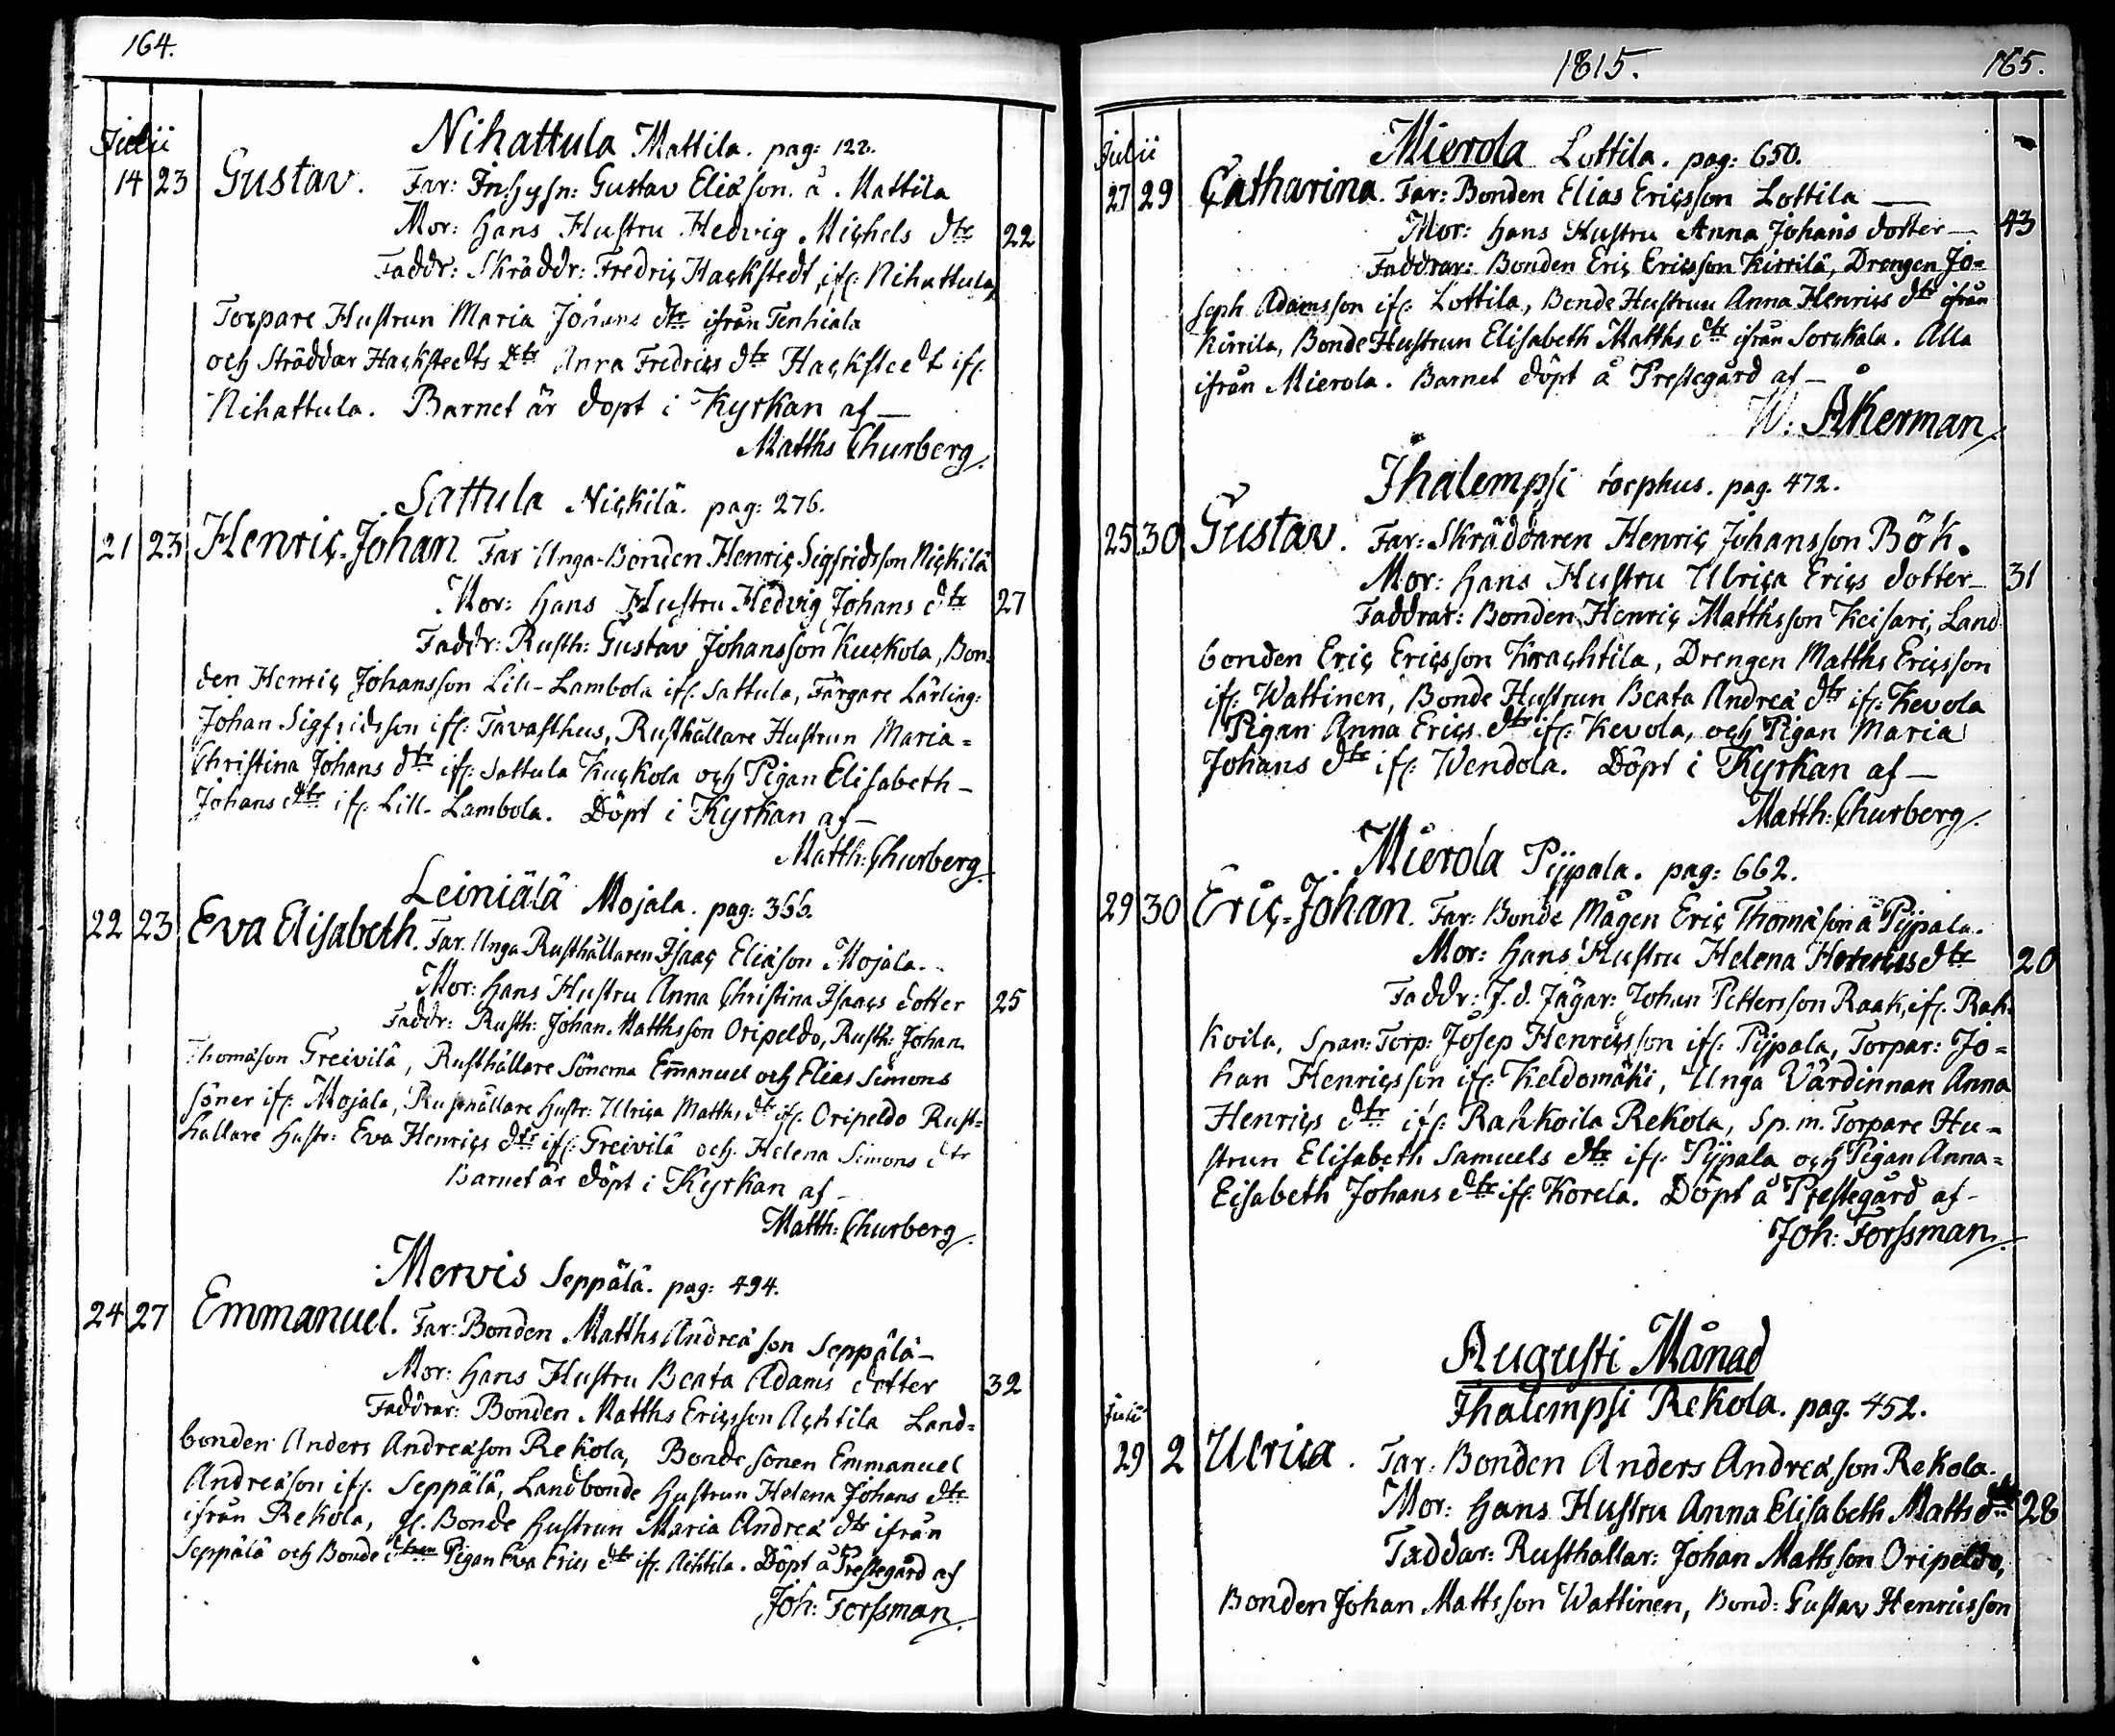 164.
Julii
Nihattula Mattila. pag: 122.
14 23 Gustav. Far: Inhysn: Gustav Eliäson. å. Mattila
Mor: hans Hustru Hedvig Michels dtr 22
Faddr: Skräddr: Fredric Hackstedt, ifr: Nihattula,
Torpare Hustrun Maria Johans dtr ifrån Tenhiala
och Sträddar Hackstedts dtr Anna Fredrics dtr Hackstedt ifr:
Nihattula. Barnet är döpt i Kyrkan af —
Matths Churberg.
Sattula Nickilä. pag: 276.
21 23 Henric-Johan. Far Unga-Bonden Henric Sigfridsson Nickilä
Mor: hans Hustru Hedvig Johans dtr 27
Faddr: Rusth: Gustav Johansson Kuckola, Bon:
den Henric Johansson Lill-Lambola ifr: Sattula, Färgare Lärling:
Johan Sigfridsson ifr: Tavasthus, Rusthållare Hustrun Maria=
Christina Johans dtr ifr: Sattula Kuckola och Pigan Elisabeth-
Johans dtr ifr: Lill-Lambola. Döpt i Kyrkan af —
Matth: Churberg.
Leiniälä Mojala. pag: 366.
22 23 Eva Elisabeth. Far. Unga Rusthållaren Isaac Eliäson Mojala.
Mor: hans Hustru Anna Christina Isaacs dotter 25
Faddr: Rusth: Johan Matthsson Oripeldo, Rusth: Johan
Thomäson Greivilä, Rusthållare Sönerna Emanuel och Elias Simons
söner ifr: Mojala, Rusthållare hustr: Ulrica Matths dtr ifr: Oripeldo Rust=
hållare hustr: Eva Henrics dtr ifr: Greivilä och Helena Simons dtr
Barnet är döpt i Kyrkan af —
Matth: Churberg.
Mervis Seppälä. pag: 494.
24 27 Emmanuel. Far: Bonden Matths Andreäson Seppälä —
Mor: hans Hustru Beata Adams dotter 32
Faddrar: Bonden Matths Ericsson Achtila Land=
bonden Anders Andreäson Rekola, Bonde sonen Emmanuel
Andreäson ifr: Seppälä, Landbonde hustrun Helena Johans dtr
ifrån Rekola, gl. Bonde hustrun Maria Andreä dtr ifrån
Seppälä och Bonde Pigan Eva Erics dtr ifr. Achtila. Döpt å Prestegård af
Joh: Forssman.
1815. 165.
Julii
Mierola Lottila. pag: 650.
27 29 Catharina. Far: Bonden Elias Ericsson Lottila —
Mor: hans Hustru Anna Johans dotter — 43
Faddrar: Bonden Eric Ericsson Kirrilä, Drengen Jo=
seph Adamsson ifr: Lottila, Bonde Hustrun Anna Henrics dtr ifrån
Kirrila, Bonde Hustrun Elisabeth Matths dtr ifrån Sorckala. Alla
ifrån Mierola. Barnet döpt å Prestegård af —
W: Åkerman.
Ihalempsi torphus. pag. 472.
25 30 Gustav. Far: Skräddaren Henric Johansson Bök.
Mor: hans Hustru Ulrica Erics dotter — 31
Faddrar: Bonden Henric Matthsson Keisari, Land
bonden Eric Ericsson Krachtila, Drengen Matths Ericsson
ifr: Wattinen, Bonde Hustrun Beata Andreä dtr ifr: Kevola
Pigan Anna Erics dtr ifr: Kevola, och Pigan Maria
Johans dtr ifr: Wendola. Döpt i Kyrkan af —
Matth: Churberg.
Mierola Pijpala. pag: 662.
29 30 Eric-Johan. Far: Bonde Mågen Eric Thomäson å Pijpala.
Mor: hans Hustru Helena dtr 20
Faddr: F. d. Jägar: Johan Pettersson Raak, ifr. Rah.
koila, Span: Torp: Josep Henricsson ifr: Pijpala, Torpar: Jo=
han Henricsson ifr: Keldomäki, Unga Värdinnan Anna
Henrics dtr ifr: Rahkoila Rekola, Sp. m. Torpare Hu=
strun Elisabeth Samuels dtr ifr: Pijpala och Pigan Anna=
Eisabeth Johans dtr ifr: Korela. Döpt å Prestegård af —
Joh: Forssman.
Augusti Månad
Ihalempsi Rekola. pag. 452.
Julii
29 2 Ulrica. Far: Bonden Anders Andreäson Rekola.
Mor: hans Hustru Anna Elisabeth Matts dtr 28
Faddar: Rusthallar: Johan Mattsson Oripeldo,
Bonden Johan Mattsson Wattinen, Bond: Gustav Henricsson